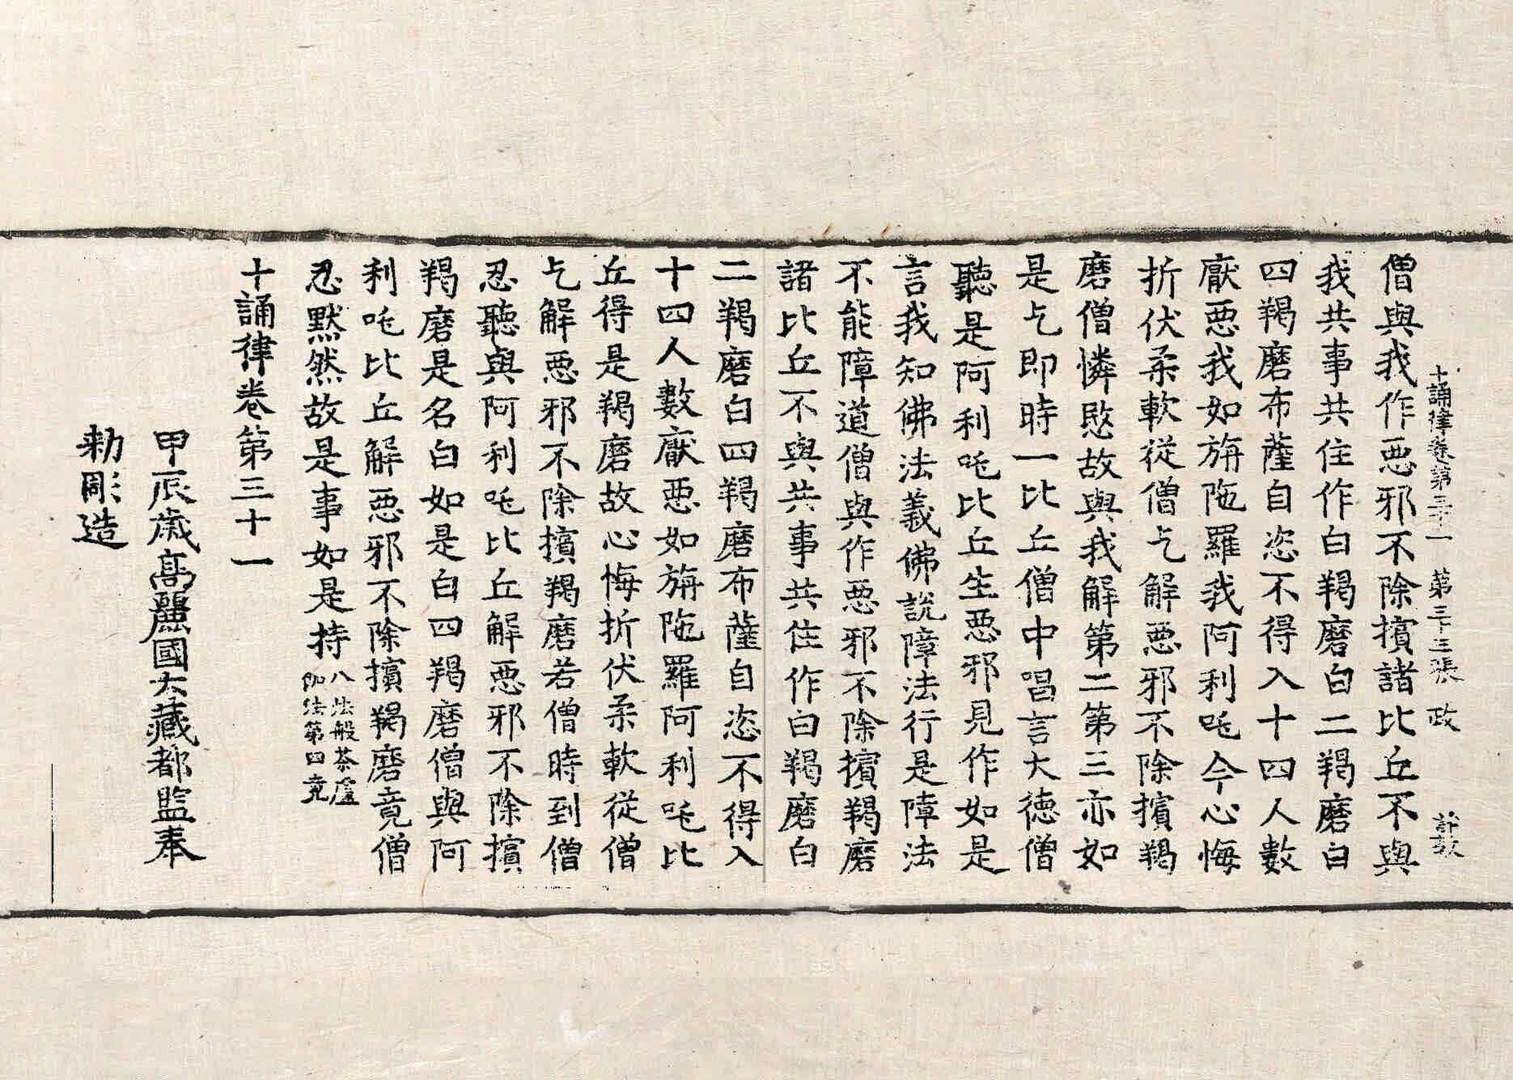 十誦律卷第三十一 第三十三張 政
僧與我作惡邪不除擯諸比丘不與
我共事共住作白羯磨白二羯磨白
四羯磨布薩自恣不得入十四人數
厭惡我如旃陁羅我阿利吒今心悔
折伏柔軟從僧乞解惡邪不除擯羯
磨僧憐愍故與我解第二第三亦如
是乞即時一比丘僧中唱言大德僧
聽是阿利吒比丘生惡邪見作如是
言我知佛法義佛說障法行是障法
不能障道僧與作惡邪不除擯羯磨
諸比丘不與共事共住作白羯磨白
二羯磨白四羯磨布薩自恣不得入
十四人數厭惡如旃陁羅阿利吒比
丘得是羯磨故心悔折伏柔軟從僧
乞解惡邪不除擯羯磨若僧時到僧
忍聽與阿利吒比丘解惡邪不除擯
羯磨是名白如是白四羯磨僧與阿
利吒比丘解惡邪不除擯羯磨竟僧
忍默然故是事如是持
八法般茶盧
伽法第四竟
十誦律卷第三十一
甲辰歲高麗國大藏都監奉
勅彫造